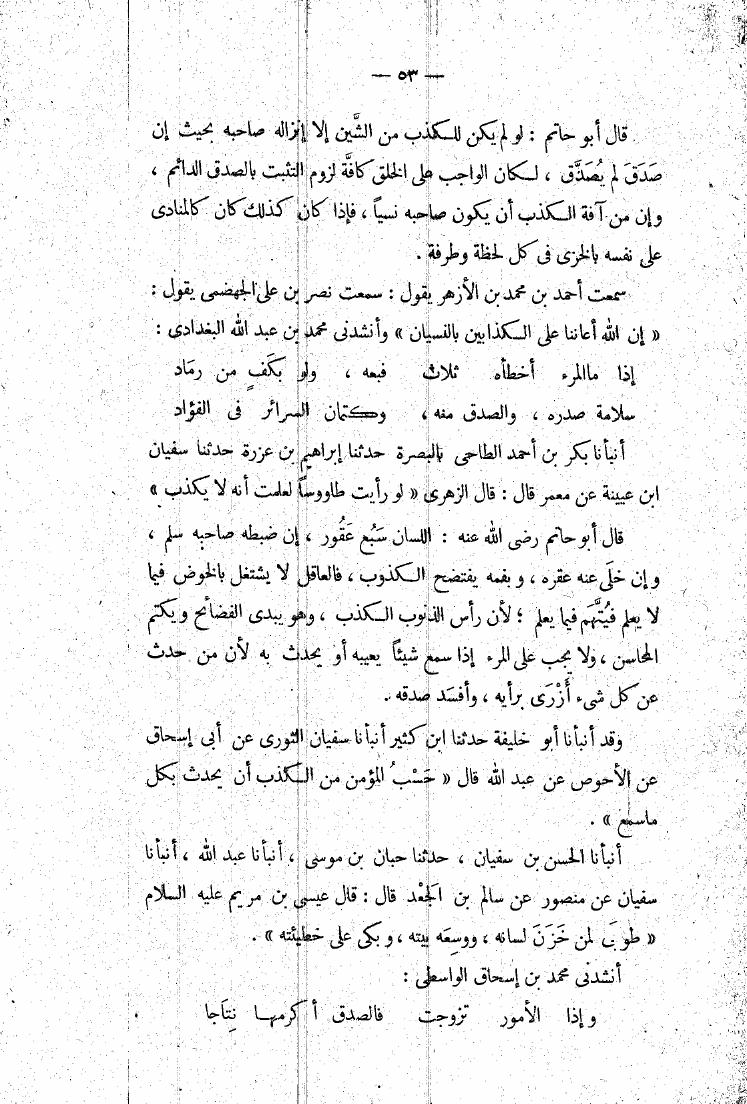 — ٥٣ —
قال أبو حاتم : لو لم يكن للكذب من الشَّين إلا إنزاله صاحبه بحيث إن
صَدَقَ لم يُصَدَّق ، لكان الواجب على الخلق كافَّة لزوم التثبت بالصدق الدائم ،
وإن من آفة الكذب أن يكون صاحبه نسياً ، فإذا كان كذلك كان كالمنادى
على نفسه بالخزى فى كل لحظة وطرفة .
سمعت أحمد بن محمد بن الأزهر يقول : سمعت نصر بن على الجهضمى يقول :
« إن الله أعاننا على الكذابين بالنسيان » وأنشدنى محمد بن عبد الله البغدادى :
إذا ماالمرء أخطأه ثلاث فبعه ، ولو بكَفٍ من رمَاد
سلامة صدره ، والصدق منه ، وكتمان السرائر فى الفؤاد
أنبأنا بكر بن أحمد الطاحى بالبصرة حدثنا إبراهيم بن عزرة حدثنا سفيان
ابن عيينة عن معمر قال : قال الزهرى « لو رأيت طاووساً لعلمت أنه لا يكذب »
قال أبو حاتم رضى الله عنه : اللسان سَبُع عَقُور ، إن ضبطه صاحبه سلم ،
وإن خلَّى عنه عقره ، وبفمه يفتضح الكذوب ، فالعاقل لا يشتغل بالخوض فيما
لا يعلم فيُتَّهَم فيما يعلم ؛ لأن رأس الذنوب الكذب ، وهو يبدى الفضائح ويكتم
المحاسن ، ولا يجب على المرء إذا سمع شيئاً يعيبه أو يحدث به لأن من حدث
عن كل شىء أَزْرَى برأيه ، وأفسَد صدقه .
وقد أنبأنا أبو خليفة حدثنا ابن كثير أنبأنا سفيان الثورى عن أبى إسحاق
عن الأحوص عن عبد الله قال « حَسْبُ المؤمن من الكذب أن يحدث بكل
ماسمع » .
أنبأنا الحسن بن سفيان ، حدثنا حبان بن موسى ، أنبأنا عبد الله ، أنبأنا
سفيان عن منصور عن سالم بن الجعْد قال : قال عيسى بن مريم عليه السلام
« طوبَى لمن خَزَنَ لسانه ، ووسِعَه بيته ، وبكى على خطيئته » .
أنشدنى محمد بن إسحاق الواسطى :
وإذا الأمور تزوجت فالصدق أكرمها نِتَاجا